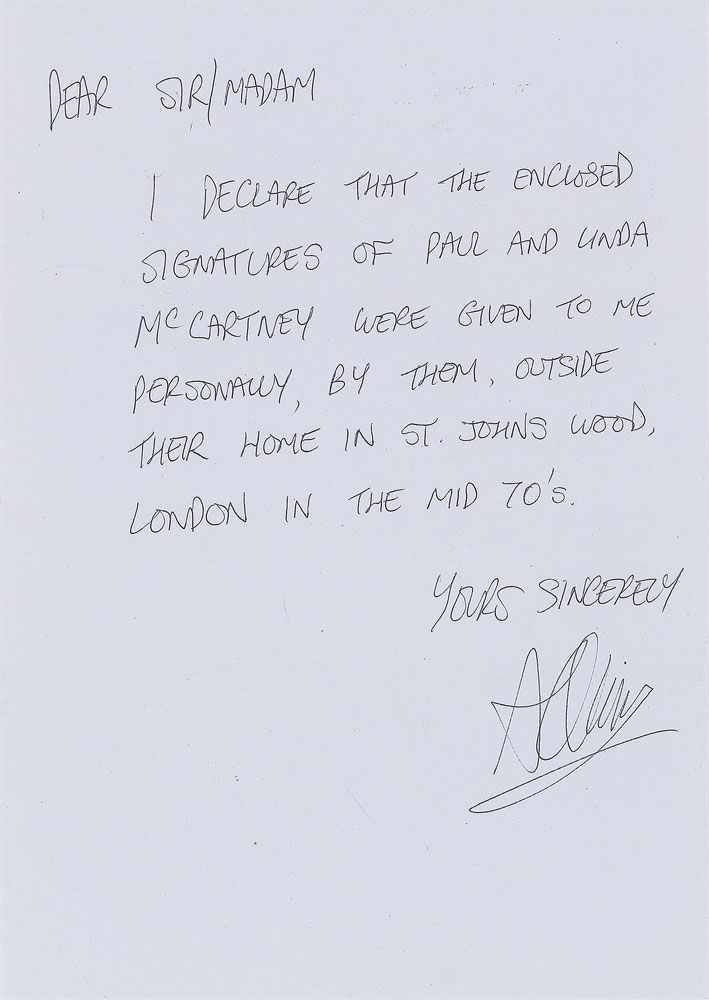 DEAR SIR/MADAM
I DECLARE THAT THE ENCLOSED
SIGNATURES OF PAUL AND LINDA
McCARTNEY WERE GIVEN TO ME
PERSONALLY, BY THEM, OUTSIDE
THEIR HOME IN ST. JOHNS WOOD,
LONDON IN THE MID 70's.
YOURS SINCERELY